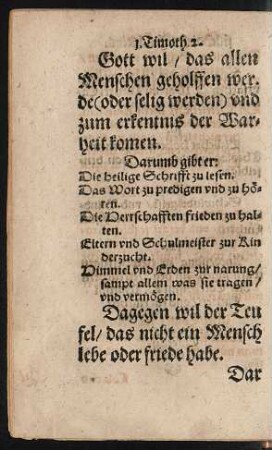 1. Timoth. 2.
Gott wil / das allen
Menschen geholffen wer-
de (oder selig werden) vnd
zum erkentnis der War-
heit komen.
Darumb gibt er:
Die heilige Schrifft zu lesen.
Das Wort zu predigen vnd zu hö-
ren.
Die Herrschafften frieden zu hal-
ten.
Eltern vnd Schulmeister zur Kin
derzucht.
Himmel vnd Erden zur narung /
sampt allem was sie tragen /
vnd vermögen.
Dagegen wil der Teu
fel / das nicht ein Mensch
lebe oder friede habe.
Dar